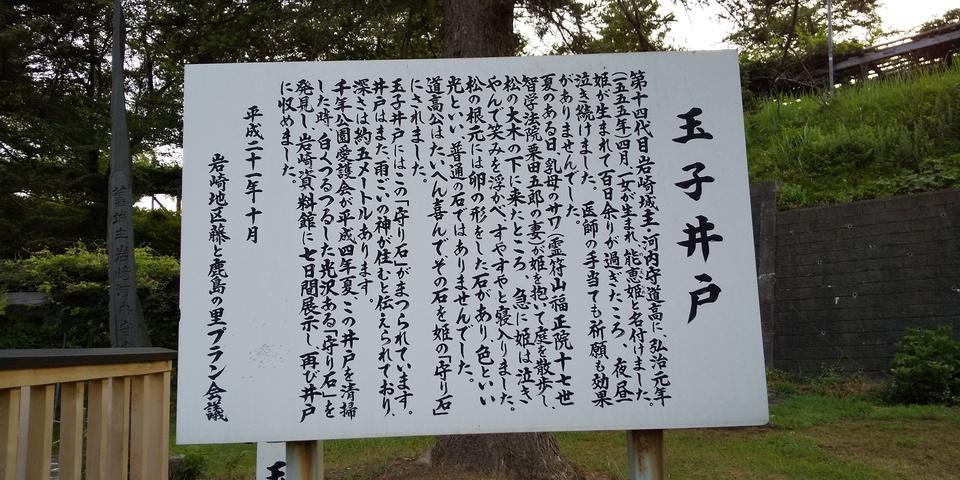 玉子井戸
第十四代目岩崎城主・河内守道高に、弘治元年
(一五五五年)四月一女が生まれ、能恵姫と名付けました。
姫が生まれて百日余りが過ぎたころ、夜昼
泣き続けました。医師の手当ても祈願も効果
がありませんでした。
夏のある日、乳母のサワ(霊符山福正院十七世
智学法院栗田五郎の妻)が姫を抱いて庭を散歩し、
松の大木の下に来たところ、急に姫は泣き
やんで笑みを浮かべ、すやすやと寝入りました。
松の根元には卵の形をした石があり、色といい
光といい、普通の石ではありませんでした。
道高公はたいへん喜んでその石を姫の「守り石」
にされました。
玉子井戸にはこの「守り石」がまつられています。
井戸はまた、雨ごいの神が住むと伝えられており、
深さは約五メートルあります。
千年公園愛護会が平成四年夏、この井戸を清掃
した時、白くつるつるした光沢ある「守り石」を
発見し、岩崎資料館に七日間展示し、再び井戸
に収めました。
平成二十一年十月
岩崎地区藤と鹿島の里プラン会議
玉